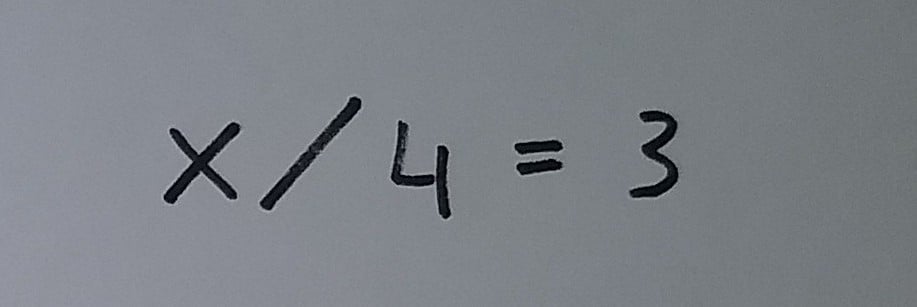 x / 4 = 3